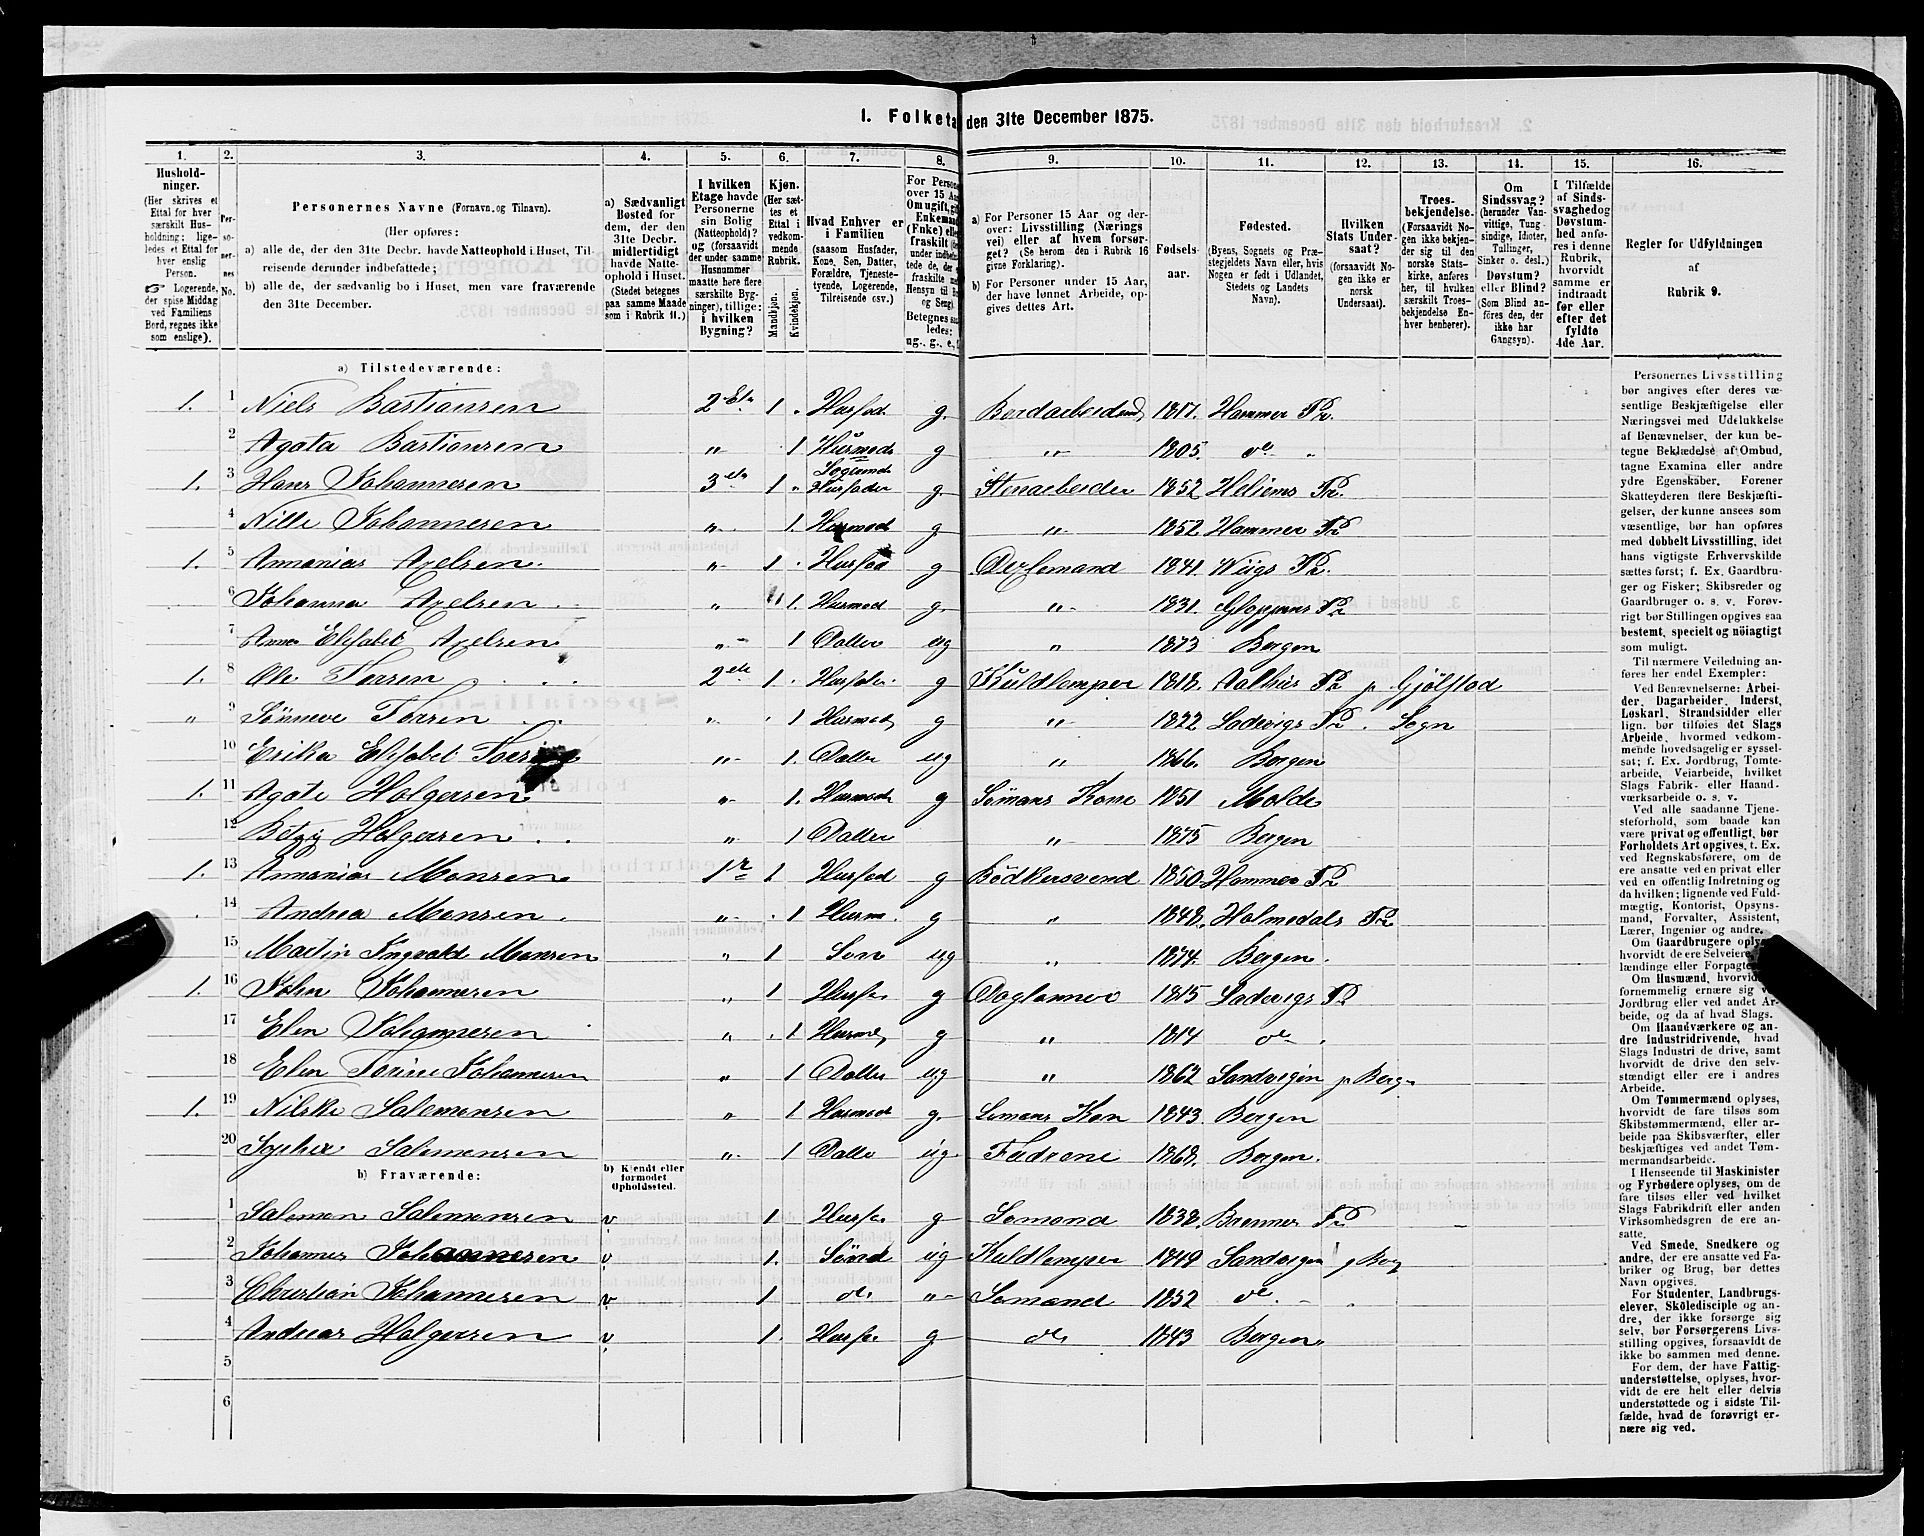 1. Folketa den 31te December 1875.
1. 2. 3. 4. 5. 6. 7. 8. 9. 10. 11. 12. 13. 14. 15. 16.
Hushold-
ninger.
(Her skrives et
Ettal for hver
særskilt Hus-
holdning; lige-
ledes et Ettal for
hver enslig
Person.
Logerende,
der spise Middag
ved Familiens
Bord, regnes ikke
som enslige).
Per-
so-
ner-
nes
No.
Personernes Navne (Fornavn og Tilnavn).
(Her opføres:
a) alle de, der den 31te Decbr. havde Natteophold i Huset, Til-
reisende derunder indbefattede;
b) alle de, der sædvanlig bo i Huset, men vare fraværende
den 31te December.
a) Sædvanligt
Bosted for
dem, der den
31te Decbr.
midlertidigt
havde Natte-
ophold i Huset.
(Stedet betegnes
paa samme Maade
som i Rubrik 11.)
I hvilken
Etage havde
Personerne
sin Bolig
(Natteophold)?
og (forsaavidt
der under samme
Husnummer
maatte høre flere
særskilte Byg-
ninger), tillige:
i hvilken
Bygning?
Kjøn.
(Her sæt-
tes et
Ettal i
vedkom-
mende
Rubrik.
Mandkjøn.
Kvindekjøn.
Hvad Enhver er
i Familien
(saasom Husfader,
Kone, Søn, Datter,
Forældre, Tjeneste-
tyende, Logerende,
Tilreisende osv.)
For Persone
over 15 Aa
Om ugift, gif
Enkemand
(Enke) elle
fraskilt
Betegnes saa
ledes:
ug., g., e, f
a) For Personer 15 Aar og der-
over: Livsstilling (Nærings
vei) eller af hvem forsør-
get? (Se herom den i Rubrik 16
givne Forklaring).
b) For Personer under 15 Aar,
der have lønnet Arbeide, op-
gives dettes Art.
Fødsels-
aar.
Fødested.
(Byens, Sognets og Præ-
stegjeldets Navn eller, hvis
Nogen er født i Udlandet,
Stedets og Landets
Navn).
Hvilken
Stats Under-
saat?
(forsaavidt No-
gen ikke er
norsk
Undersaat).
Troes-
bekjendelse.
(Forsaavidt No-
gen ikke bekjen-
der sig til den
norske Stats-
kirke, anføres
her, til hvilken
særskilt Troes-
bekjendelse En-
hver henhører).
Om
Sindssvag?
(herunder Van-
vittige, Tung-
sindige, Idioter,
Tullinger,
Sinker o. desl.)
Døvstum?
eller Blind?
(Som Blind an-
føres den, der
ikke har
Gangsyn).
I Tilfælde
af Sinds-
svaghed og
Døvstum-
hed anfø-
res i denne
Rubrik,
hvorvidt
samme er
indtraadt
før eller
efter det
fyldte
4de Aar.
Regler for Udfyldningen
af
Rubrik 9.
a) Tilstedeværende:
1. 1 Niels Bastiansen 2 Eta 1 Husfad. g. Bordarbeidsmd 1817. Hammer Pr.
2 Agata Bastiansen " 1 Husmod g " 1805. do "
1. 3 Hans Johannesen 3 eta 1 Husfader g. Stenarbeider 1852 Pr.
4 Nille Johannesen " 1. Husmod g " 1852 Hammer Pr
1. 5 Annanias Axelsen " 1 Husfad g 1841. Wiigs Pr.
6 Johanna Axelsen " 1. Husmod g. " 1831. Gloppens Pr
7 Anna Elisabet Axelsen " 1 Datter ug " 1873 Bergen
1. 8 Ole Torsen 2 eta 1. Husfader g Kuldlemper 1818. Pr p Gjølstad
" 9 Sønneve Torsen " 1 Husmod g " 1822 Ladvigs Pr. Sogn
10 Erika Elisabet " 1. Datter ug " 1866. Bergen
1. 11 Agate Holgersen " 1. Husmod g Sømans Kone 1851 Molde
12 Betzy Holgersen " 1 Datter " 1875 Bergen
1. 13 Annanias Monsen 1 1 Husfad g Bødkersvend 1850. Hammer Pr
14 Andrea Monsen " 1 Husm. g " 1848. Holmedals Pr
15 Martin Ingvald Monsen " 1 Søn ug " 1874. Bergen.
1. 16 Johannesen " 1 Husfa g Daglønner 1815 Ladvigs Pr
17 Elen Johannesen " 1 Husmd g " 1814 do
18 Elen Torine Johannesen " 1 Datter ug " 1862 Sandvigen p Berg
1. 19 Nilske Salemonsen " 1 Husmod g. Sømans Kon 1843. Bergen
20 Salemonsen " 1 Datte ug 1868. Bergen.
b) Fraværende:
b) Kjendt eller
formodet
Opholdssted.
1 Salemon Salemonsen v 1 Husfa g Sømand 1838. Pr
2 Johannes Johannesen v 1. Sønd ug Kuldlemper 1849 Sandvigen p Berg
3 Christian Johannesen v 1 do " Sømand 1852 do
4 Andreas Holgersen v 1. Husfa g do 1843 Bergen
5
6
Personernes Livsstilling
bør angives efter deres væ-
sentlige Beskjæftigelse eller
Næringsvei med Udelukkelse
af Benævnelser, der kun be-
tegne Beklædelse af Ombud,
tagne Examina eller andre
ydre Egenskaber. Forener
Skatteyderen flere Beskjæfti-
gelser, der kunne ansees som
væsentlige, bør han opføres
med dobbelt Livsstilling, idet
hans vigtigste Erhvervskilde
sættes først; f. Ex. Gaardbru-
ger og Fisker; Skibsreder og
Gaardbruger o. s. v. Forøv-
rigt bør Stillingen opgives saa
bestemt, specielt og nöiagtigt
som muligt.
Til nærmere Veiledning an-
føres her endel Exempler:
Ved Benævnelserne: Arbei-
der, Dagarbeider, Inderst,
Løskarl, Strandsidder eller
lign. bør tilføies det Slags
Arbeide, hvormed vedkom-
mende hovedsagelig er syssel-
sat; f. Ex. Jordbrug, Tomte-
arbeide, Veiarbeide, hvilket
Slags Fabrik- eller Haand-
værksarbeide o. s. v.
Ved alle saadanne Tjene-
steforhold, som baade kan
være privat og offentligt, bør
Forholdets Art opgives, t. Ex.
ved Regnskabsførere, om de
ere ansatte ved en privat eller
ved en offentlig Indretning og
da hvilken; lignende ved Fuld-
mægtig, Kontorist, Opsyns-
mand, Forvalter, Assistent,
Lærer, Ingeniør og andre.
Om Gaardbrugere oplys
hvorvidt de ere Selveiere,
lændinge eller Forpagte
Om Husmænd, hvorvid
fornemmelig ernære sig v
Jordbrug eller ved andet Ar-
beide, og da af hvad Slags.
Om Haandværkere og an-
dre Industridrivende, hvad
Slags Industri de drive, samt
hvorvidt de drive den selv-
stændigt eller ere i andres
Arbeide.
Om Tømmermænd oplyses,
hvorvidt de fare tilsøs som
Skibstømmermænd, eller ar-
beide paa Skibsværfter, eller
beskjæftiges ved andet Tøm-
mermandsarbeide.
I Henseende til Maskinister
og Fyrbødere oplyses, om de
fare tilsøs eller ved hvilket
Slags Fabrikdrift eller anden
Virksomhedsgren de ere an-
satte.
Ved Smede, Snedkere og
andre, der ere ansatte ved Fa-
briker og Brug, bør dettes
Navn opgives.
For Studenter, Landbrugs-
elever, Skoledisciple og an-
dre, der ikke forsørge sig
selv, bør Forsørgerens Livs-
stilling opgives, forsaavidt de
ikke bo sammen med denne.
For dem, der have Fattig-
understøttelse, oplyses, hvor-
vidt de ere helt eller delvis
understøttede og i sidste Til-
fælde, hvad de forøvrigt er-
nære sig ved.